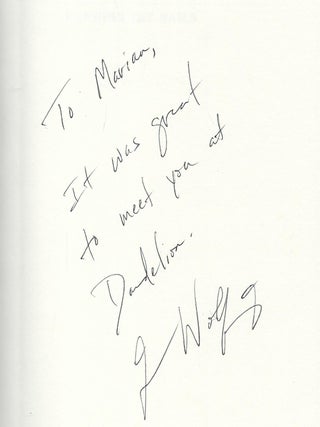 To Marian,
It was great
to meet you at
Dandelion.